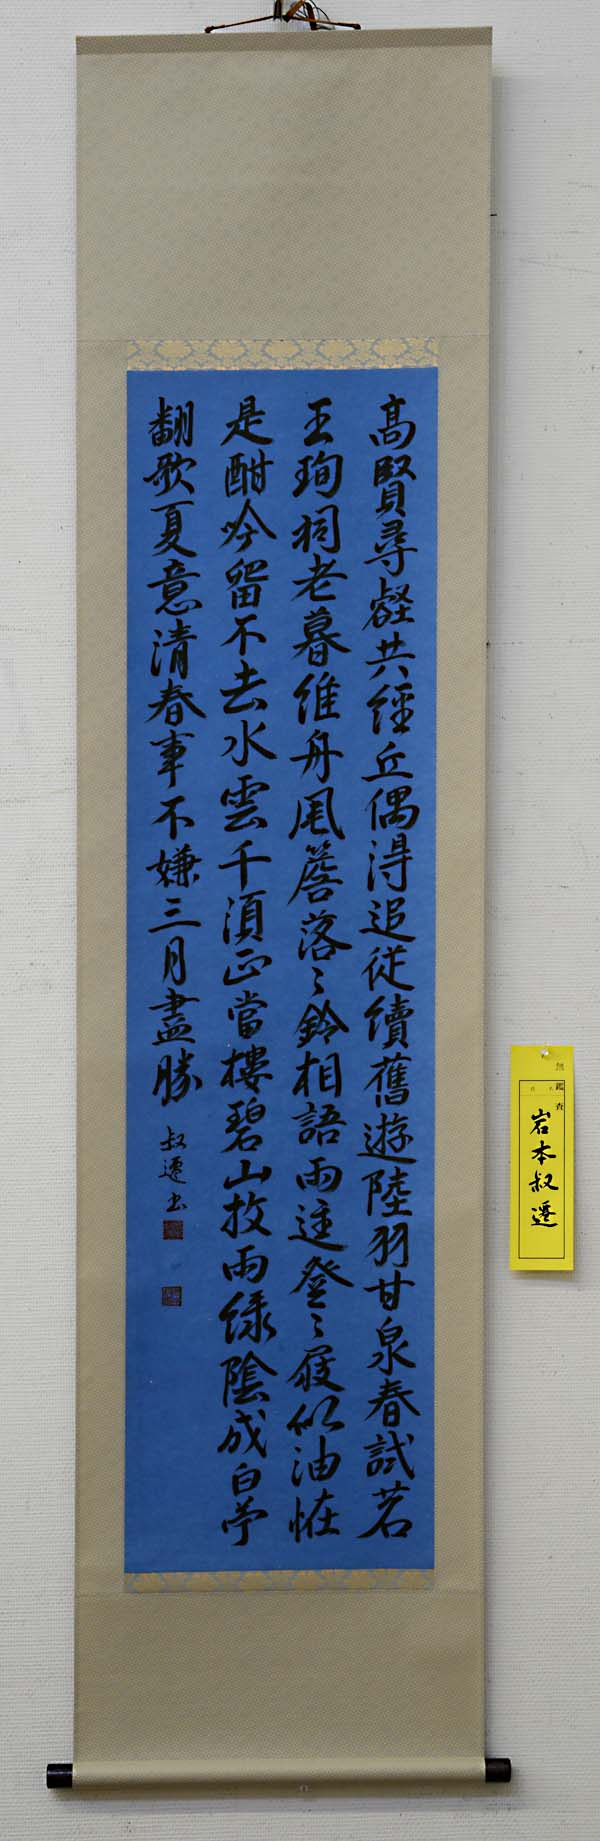 高賢尋壑共經丘偶得追從續舊遊陸羽甘泉春試茗
王珣祠老暮維舟風簷落〻鈴相語雨逕登〻屐似油恠
是酣吟留不去水雲千頃正當樓碧山放雨緑陰成白苧
翻歌夏意清春事不嫌三月盡勝
叔遷书
無鑑査
岩本叔遷